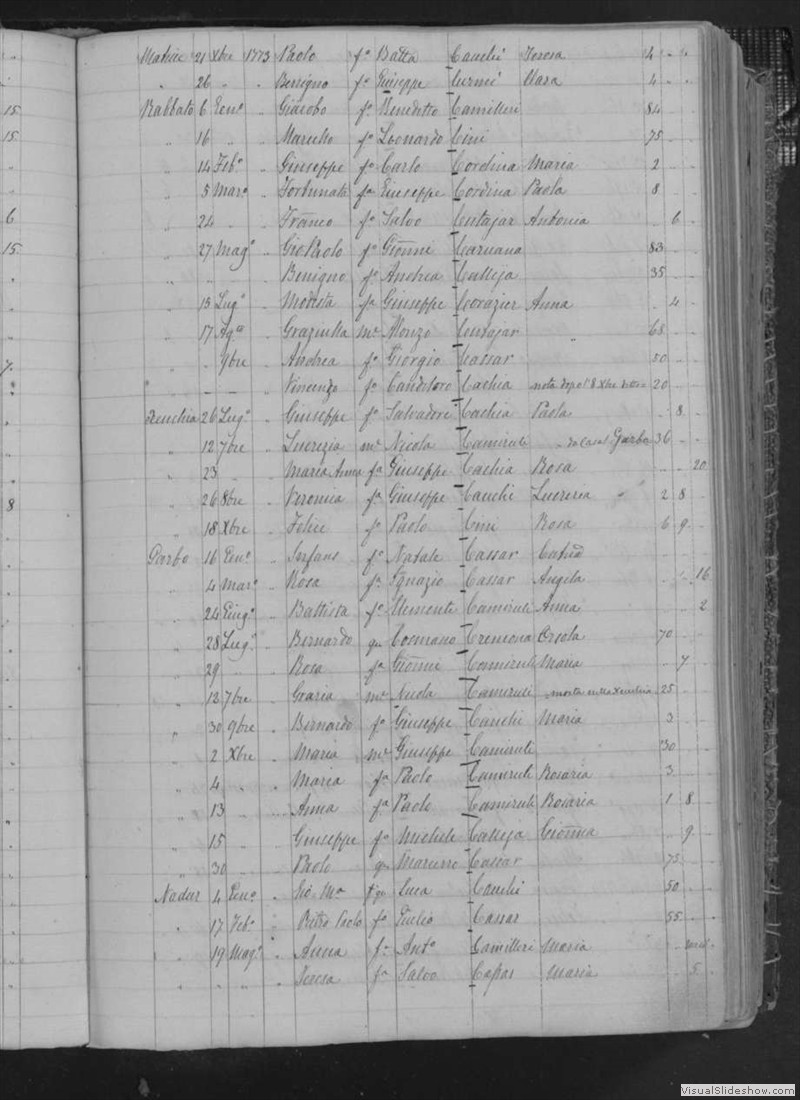 Matrice 21 Xbre 1773 Paolo fo Batta Cauchi Teresa 4
" 26 " " Benigno fo Giuseppe Curmi Clara 4
Rabbato 6 Geno " Giacobo fo Benedetto Camilleri 84
15 " 16 " " Marcello fo Leonardo Cini 75
15 " 14 Febo " Giuseppe fo Carlo Cordina Maria 2
" 5 Maro " Fortunata fa Giuseppe Cordina Paola 8
6 " 24 " " Franco fo Salvo Centajar Antonia 6
15 " 27 Mago " Gio Paolo fo Gionni Caruana 83
" " " Benigno fo Andrea Calleja 35
" 13 Lugo " Modesta fa Giuseppe Anna 4
" 17 Ago " Graziulla me Alonzo Centajar 68
" 9bre " Andrea fo Giorgio Cassar 50
7 " Vincenzo fo Cachia 20
Xeuchia 26 Lugo " Giuseppe fo Salvadore Cachia Paola 8
" 12 7bre " Lucrezia me Nicola Camiruli da Casal Garbo 36
" 23 " " Maria Anna fa Giuseppe Cachia Rosa 20
8 " 26 8bre " Veronica fa Giuseppe Cauchi Lucrezia 2 8
" 18 Xbre " Felice fo Paolo Cini Rosa 6 9
Garbo 16 Geno " Infans fo Natale Cassar
" 4 Maro " Rosa fa Ignazio Cassar Angela 16
" 24 Giugo " Battista fo Clemente Camiruli Anna 2
" 28 Lugo " Bernardo qm Cosmano Cremona Orsola 70
" 29 " " Rosa fa Gionni Camiruli Maria 7
" 12 7bre " Grazia me Camiruli morta nella Xeuchia 25
" 30 9bre " Bernardo fo Giuseppe Cauchi Maria 3
" 2 Xbre " Maria me Giuseppe Camiruli 30
" 4 " " Maria fa Paolo Camiruli Rosaria 3
" 13 " " Anna fa Paolo Camiruli Rosaria 1 8
" 15 " " Giuseppe fo Michele Calleja Gionna 9
" 30 " " Paolo qm Cassar 75
Nadur 4 Geno " Gio Ma qm Luca Cauchi 50
" 17 Febo " Pietro Paolo fo Giulio Cassar 55
" 19 Mago " Anna fa Anto Camilleri Maria
" " " Teresa fa Salvo Maria 5
VisualSlideshow.com